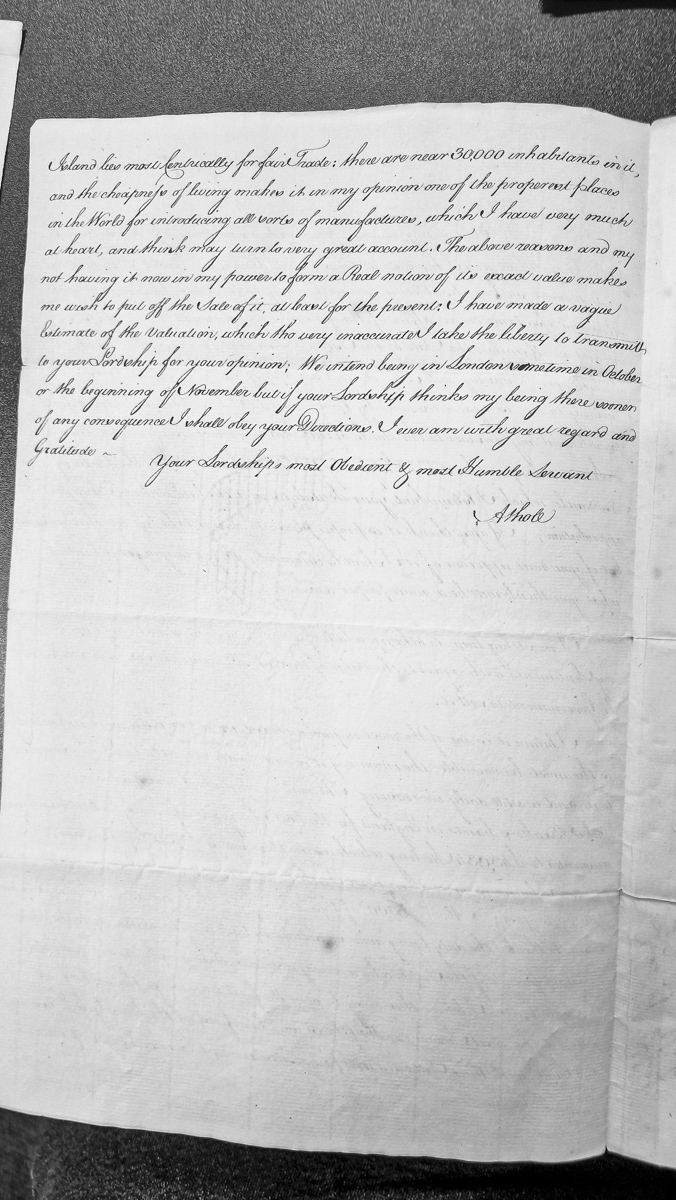 Island lies most Centrically for fair Trade: there are near 30,000 inhabitants in it,
and the cheapness of living makes it in my opinion one of the properest places
in the World for introducing all sorts of manufactures, which I have very much
at heart, and think may turn to very great account. The above reasons and my
not having it now in my power to form a Real notion of its exact value makes
me wish to put off the Sale of it, at least for the present: I have made a vague
Estimate of the valuation, which tho very inaccurate I take the liberty to transmitt
to your Lordship for your opinion; We intend being in London sometime in October
or the beginning of November but if your Lordship thinks my being there sooner
of any consequence I shall obey your Directions. I ever am with great regard and
Gratitude ~
Your Lordships most Obedient & most Humble Servant
Atholl